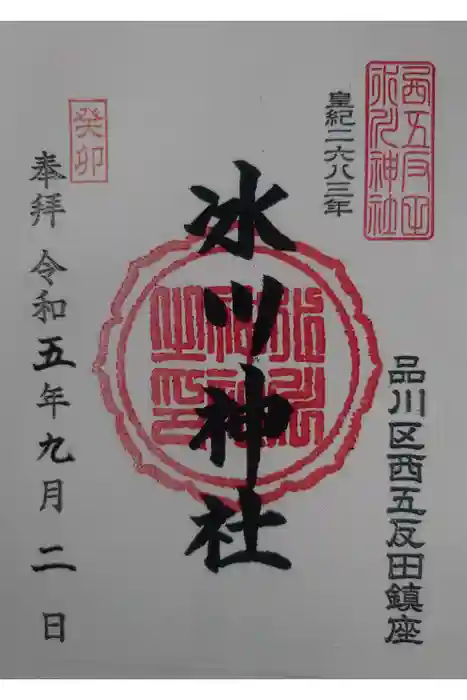 西五反田
氷川神社
皇紀二六八三年
品川区西五反田鎮座
氷川神社
氷川
神社
之印
癸卯
奉拝 令和五年九月二日